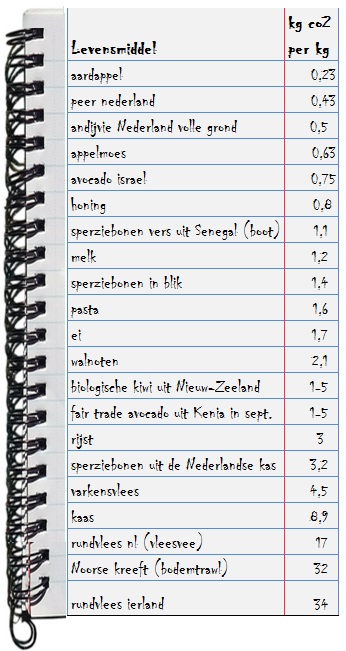 Levensmiddel kg co2 per kg
aardappel 0,23
peer nederland 0,43
andijvie Nederland volle grond 0,5
appelmoes 0,63
avocado israel 0,75
honing 0,8
sperziebonen vers uit Senegal (boot) 1,1
melk 1,2
sperziebonen in blik 1,4
pasta 1,6
ei 1,7
walnoten 2,1
biologische kiwi uit Nieuw-Zeeland 1-5
fair trade avocado uit Kenia in sept. 1-5
rijst 3
sperziebonen uit de Nederlandse kas 3,2
varkensvlees 4,5
kaas 8,9
rundvlees nl (vleesvee) 17
Noorse kreeft (bodemtrawl) 32
rundvlees ierland 34